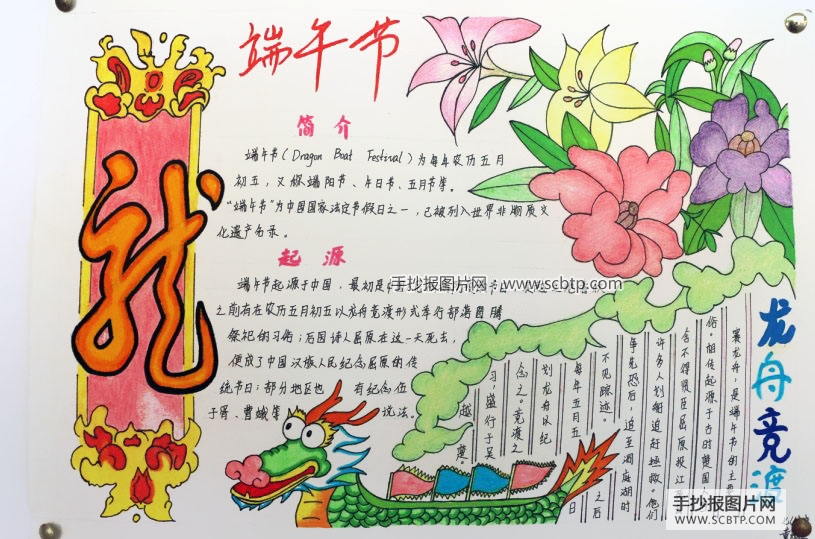 端午节
简介
端午节(Dragon Boat Festival)为每年农历五月
初五，又称端阳节、午日节、五月节等。
“端午节”为中国国家法定节假日之一，已被列入世界非物质文
化遗产名录。
起源
端午节起源于中国，最初是
手抄报图片网：www.scbtp.com
之前有在农历五月初五以龙舟竞渡形式举行部落图腾
祭祀的习俗；后因诗人屈原在这一天死去，
便成了中国汉族人民纪念屈原的传
统节日；部分地区也有纪念伍
子胥、曹娥等说法。
龙
龙舟竞渡
赛龙舟，是端午节的主要
俗。相传起源于古时楚国
舍不得贤臣屈原投江
许多人划船追赶拯救。他们
争先恐后，追至洞庭湖时
不见踪迹。之后
每年五月五日
划龙舟以纪
念之。竞渡之
习，盛行于吴
越
手抄报图片网
WWW.SCBTP.COM